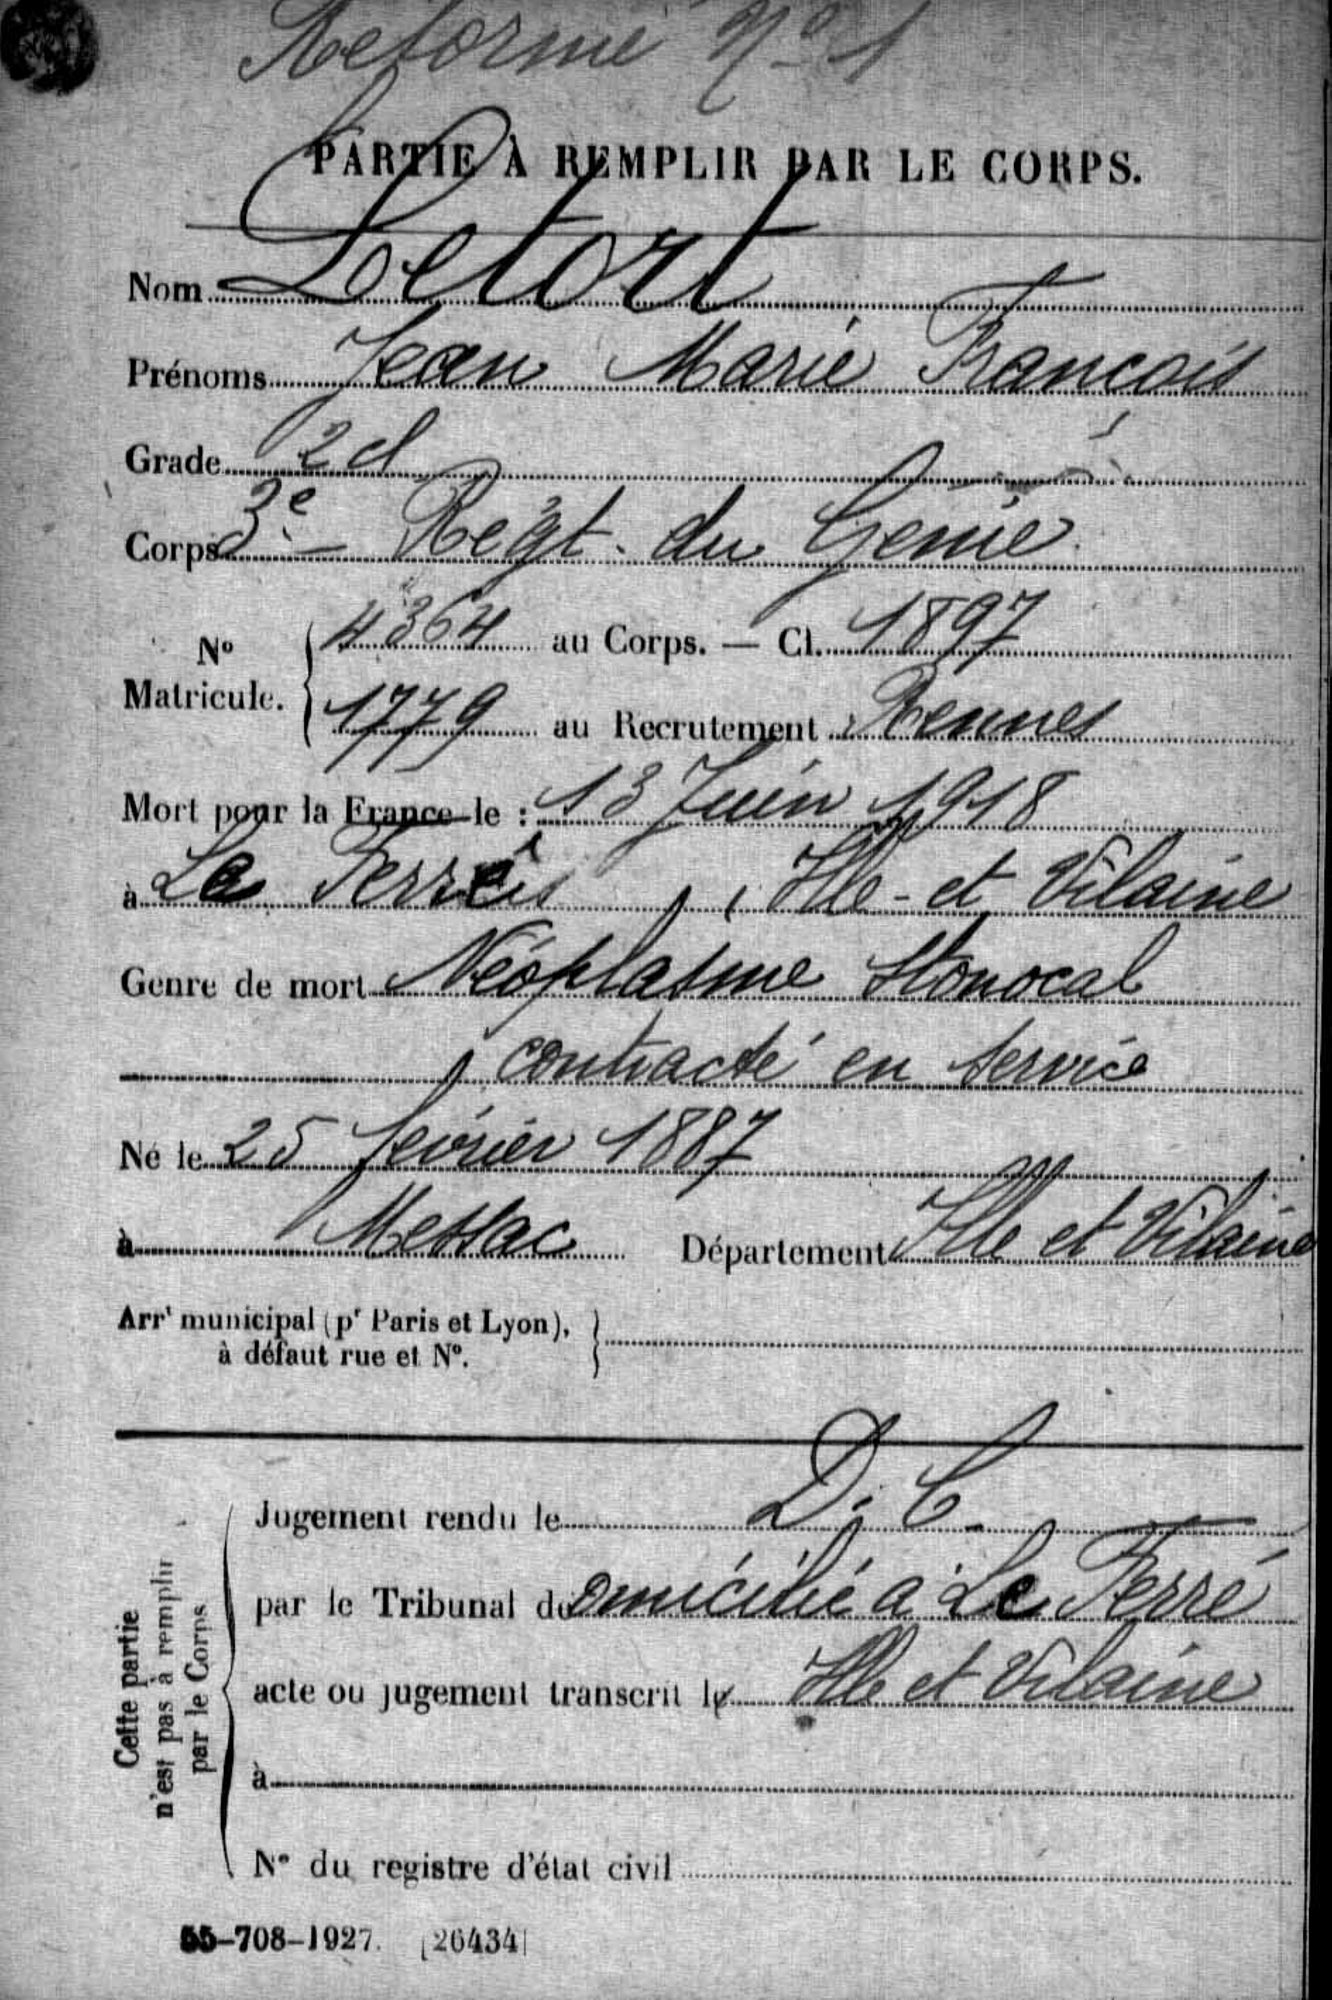 Réformé N° 1
PARTIE À REMPLIR PAR LE CORPS.
Nom Letort
Prénoms Jean Marie François
Grade 2 cl
Corps 3e Régt. du Génie
N° Matricule. 4364 au Corps. — Cl. 1897
1779 au Recrutement Rennes
Mort pour la France le : 13 Juin 1918
à Le Ferré, Ille-et Vilaine
Genre de mort Néoplasme Stomocal
contracté en service
Né le 25 février 1887
à Messac Département Ille et Vilaine
Arrt municipal (pr Paris et Lyon),
à défaut rue et N°.
Jugement rendu le D. C.
par le Tribunal domicilié à Le Ferré
acte ou jugement transcrit le Ille et Vilaine
à
N° du registre d'état civil
Cette partie
n'est pas à remplir
par le Corps
55-708-1927. [26434]